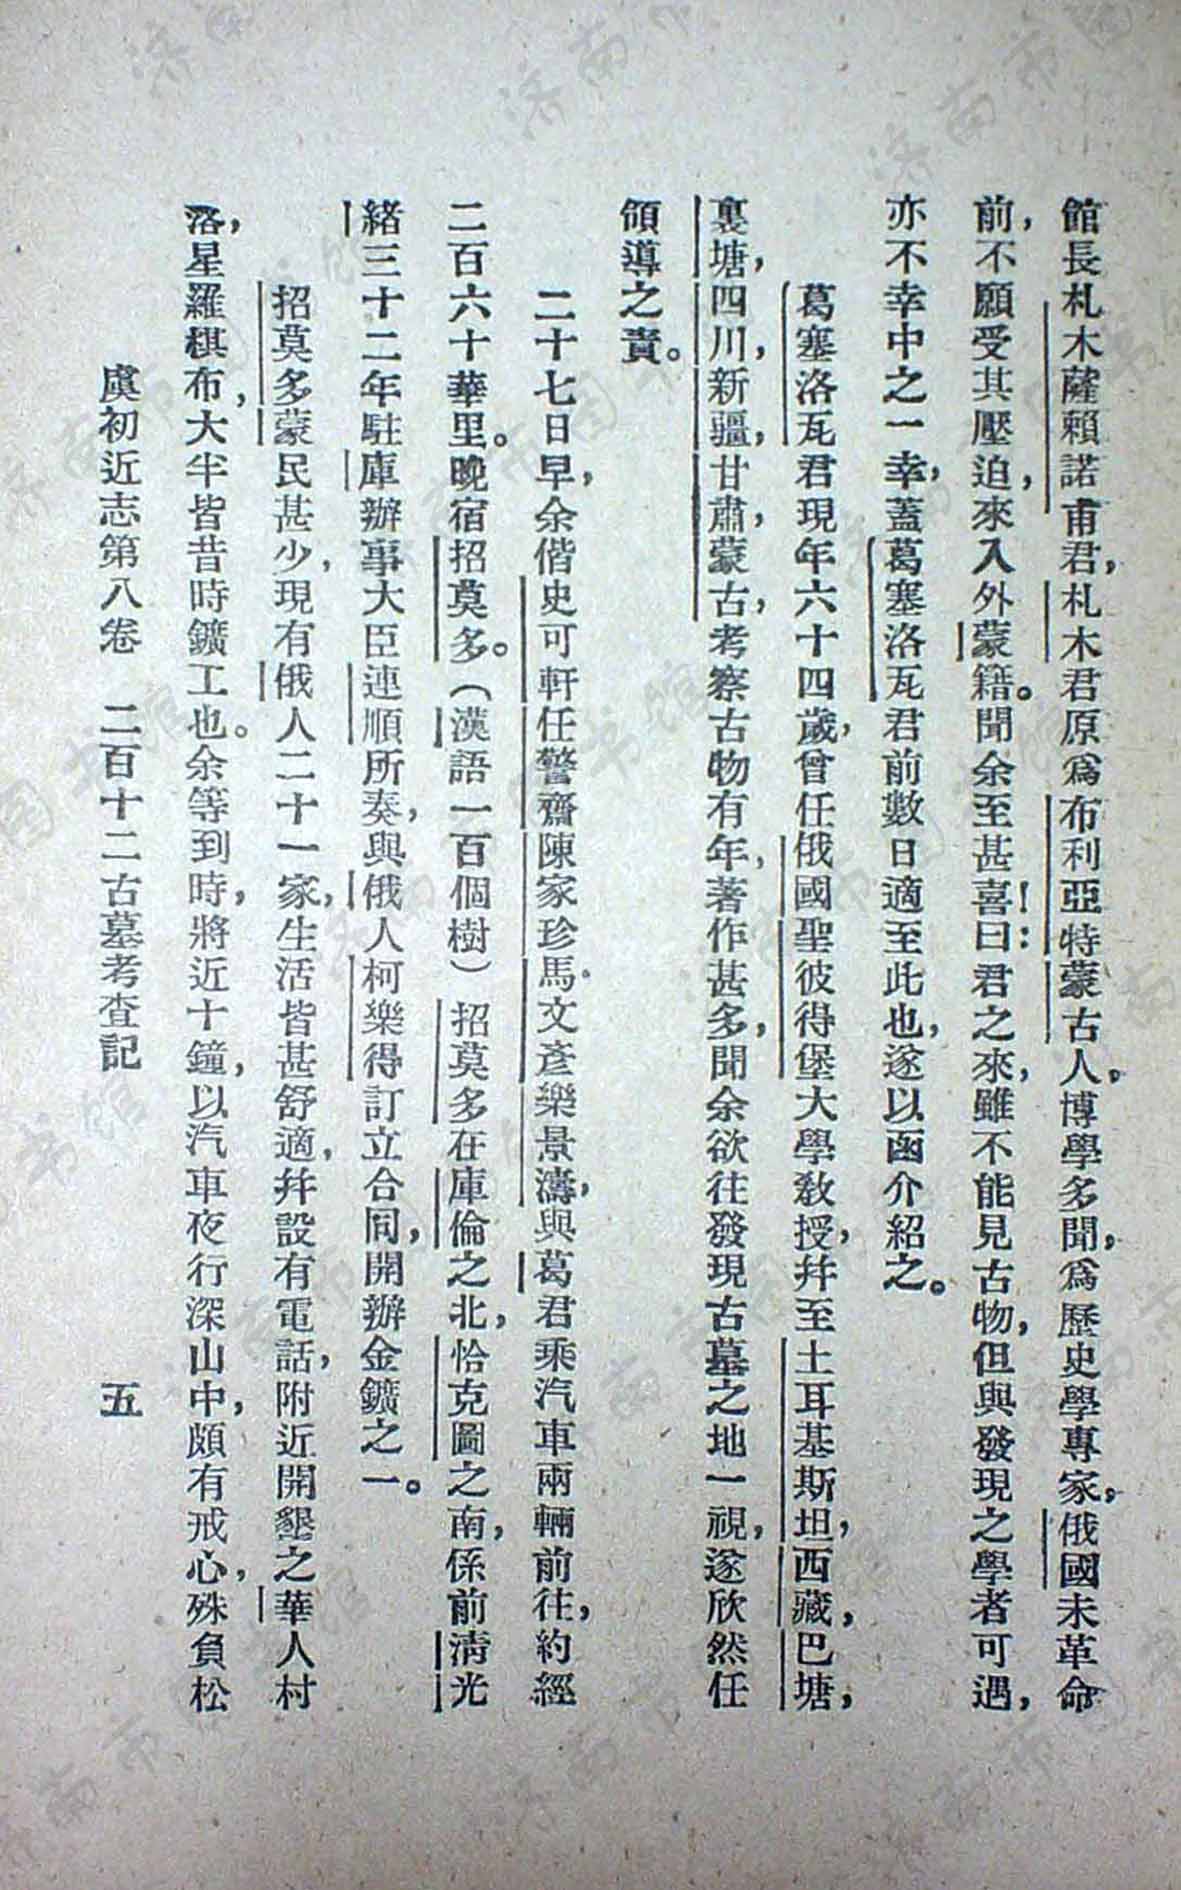 館長札木薩賴諾甫君，札木君原爲布利亞特蒙古人，博學多聞，爲歷史學專家，俄國未革命
前，不願受其壓迫，來入外蒙籍。聞余至甚喜！曰：君之來，雖不能見古物，但與發現之學者可遇，
亦不幸中之一幸，蓋葛塞洛瓦君前數日適至此也，遂以函介紹之。
葛塞洛瓦君現年六十四歲，曾任俄國聖彼得堡大學教授，幷至土耳基斯坦，西藏，巴塘，
裏塘，四川，新疆，甘肅，蒙古，考察古物有年，著作甚多，聞余欲往發現古墓之地一視，遂欣然任
領導之責。
二十七日早，余偕史可軒任警齋陳家珍馬文彥樂景濤，與葛君乘汽車兩輛前往，約經
二百六十華里。晚宿招莫多。（漢語一百個樹）招莫多在庫倫之北，恰克圖之南，係前清光
緒三十二年駐庫辦事大臣連順所奏，與俄人柯樂得訂立合同，開辦金鑛之一。
招莫多蒙民甚少，現有俄人二十一家，生活皆甚舒適，幷設有電話，附近開墾之華人村
落，星羅棋布，大半皆昔時鑛工也。余等到時，將近十鐘，以汽車夜行深山中，頗有戒心，殊負松
虞初近志第八卷　二百十二古墓考查記　五
济南市图书馆